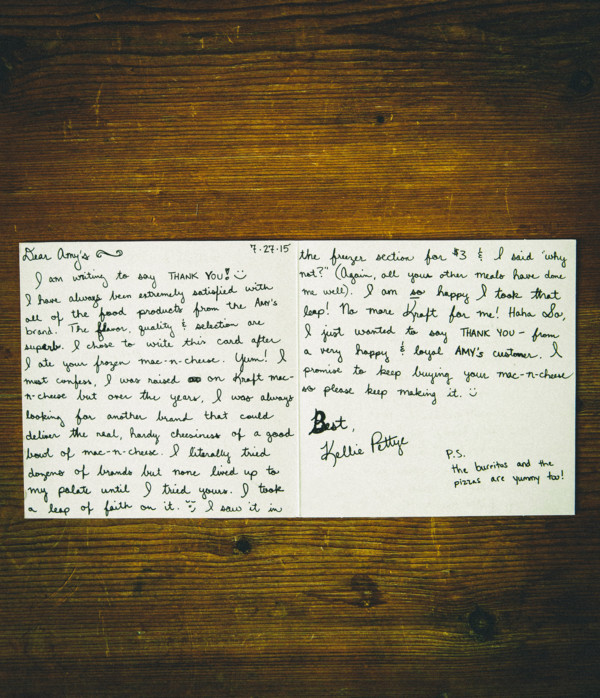 Dear Amy's
7-27-15
I am writing to say THANK YOU!
I have always been extremely satisfied with
all of the food products from the AMY'S
brand. The flavor, quality & selection are
superb. I chose to write this card after
I ate your frozen mac-n-cheese. Yum! I
must confess, I was raised on Kraft mac-
n-cheese but over the years, I was always
looking for another brand that could
deliver the real, hardy cheesiness of a good
bowl of mac-n-cheese. I literally tried
dozens of brands but none lived up to
my palate until I tried yours. I took
a leap of faith on it. I saw it in
the freezer section for $3 & I said "why
not?" (Again, all your other meals have done
me well). I am so happy I took that
leap! No more Kraft for me! Haha So,
I just wanted to say THANK YOU - from
a very happy & loyal AMY'S customer. I
promise to keep buying your mac-n-cheese
so please keep making it.
Best,
Kellie Pettye
P.S.
the burritos and the
pizzas are yummy too!